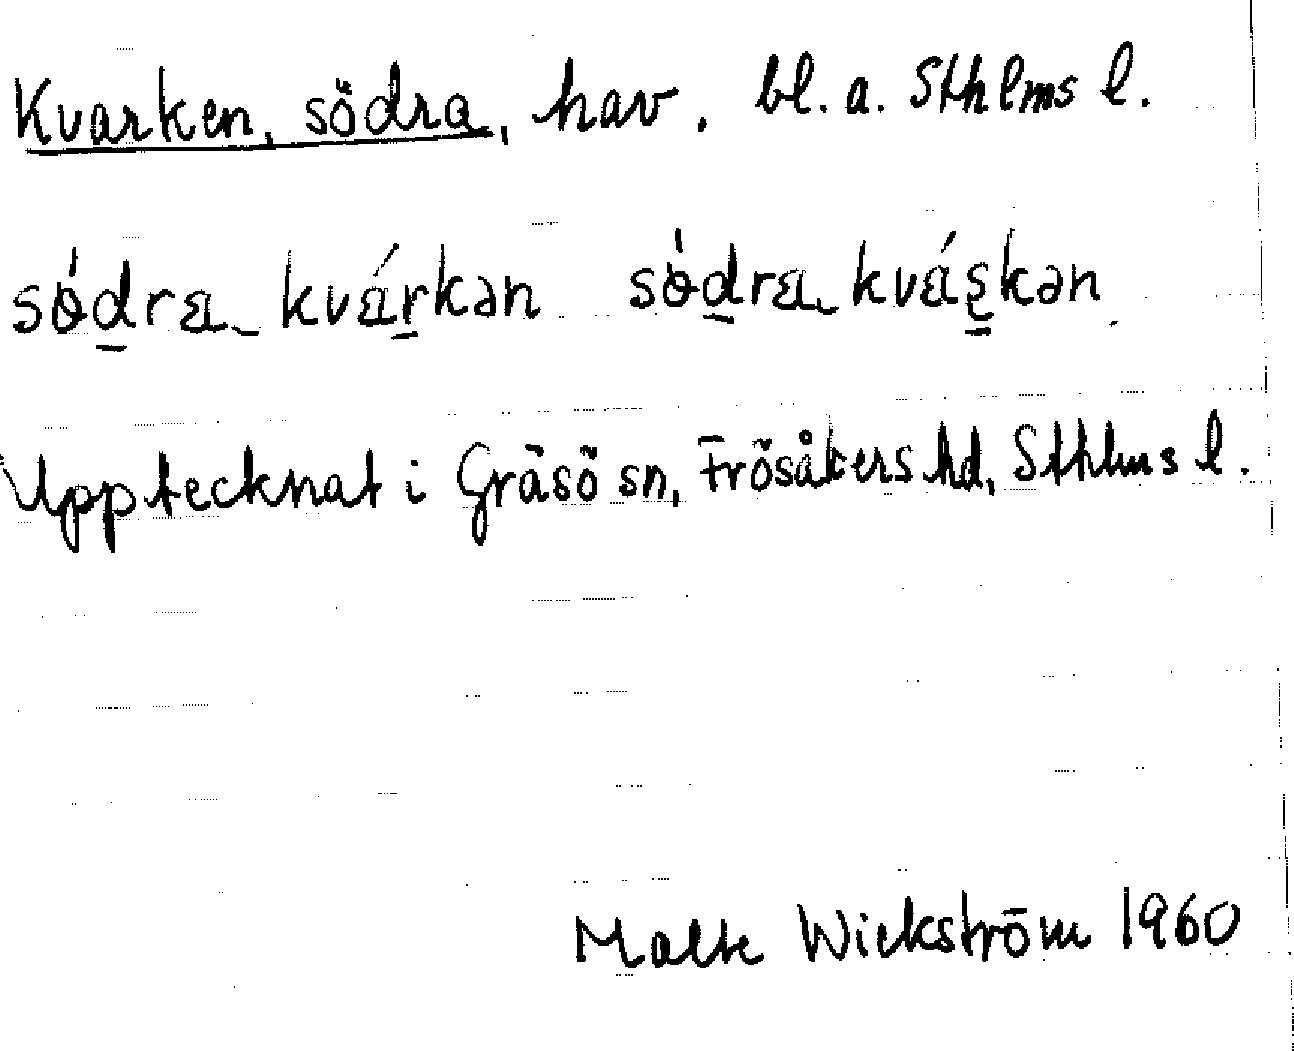 Kvarken, södra, hav. bl. a. Sthlms l.
sǿdra kvárkən sǿdra kváʂkən
Upptecknat i Gräsö sn, Frösåkers hd, Sthlms l.
Malte Wickström 1960